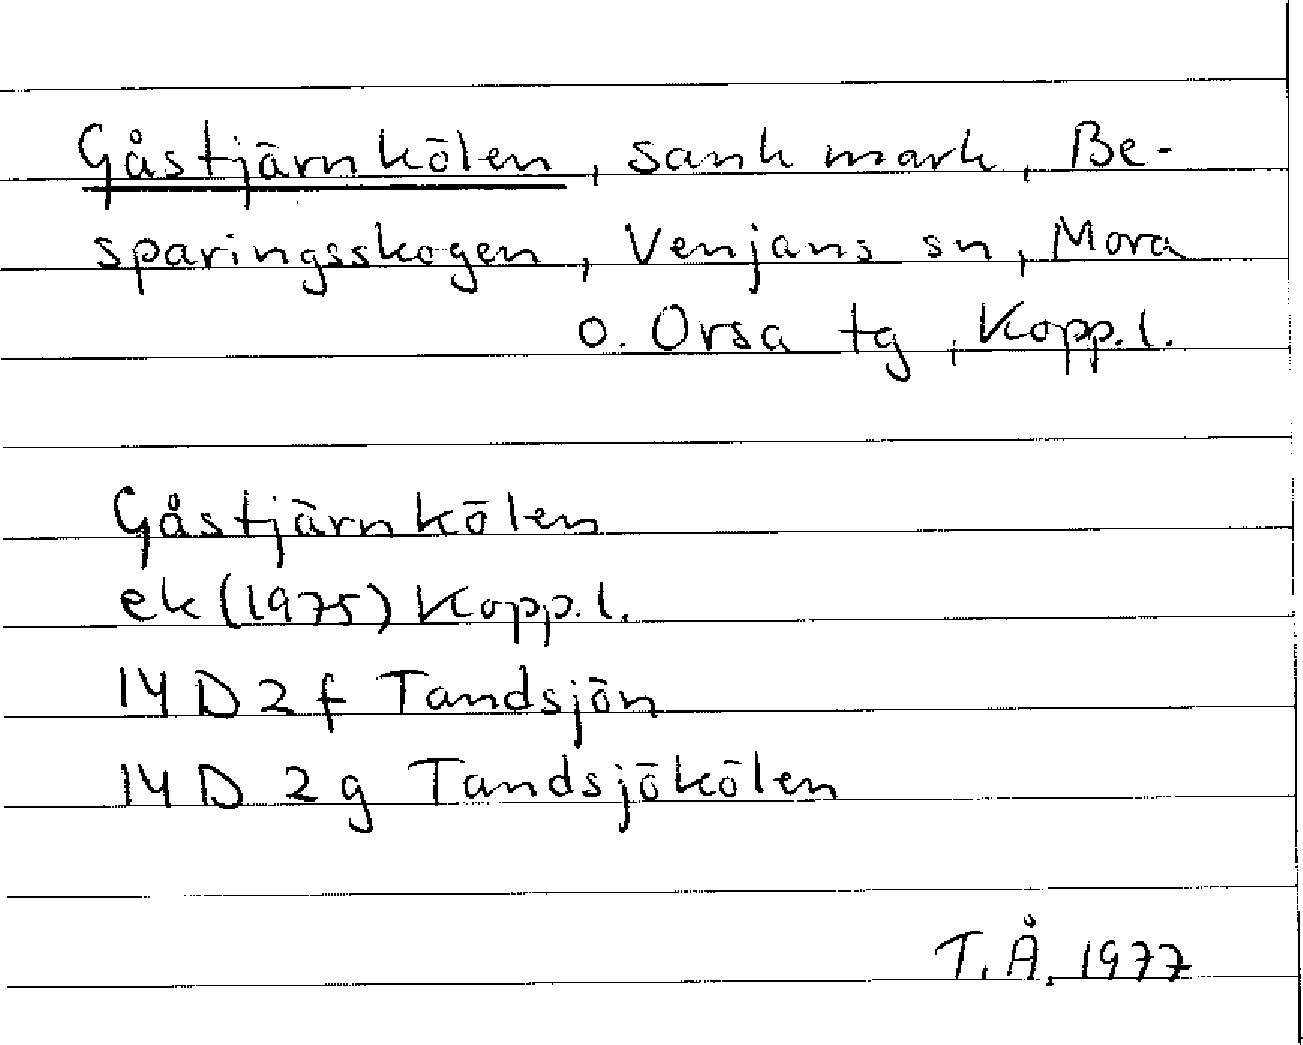 Gåstjärnkölen, sank mark, Be-
sparingsskogen, Venjans sn, Mora
o. Orsa tg, Kopp. l.
Gåstjärnkölen
ek (1975) Kopp. l.
14 D 2 f Tandsjön
14 D 2 g Tandsjökölen
T. Å. 1977